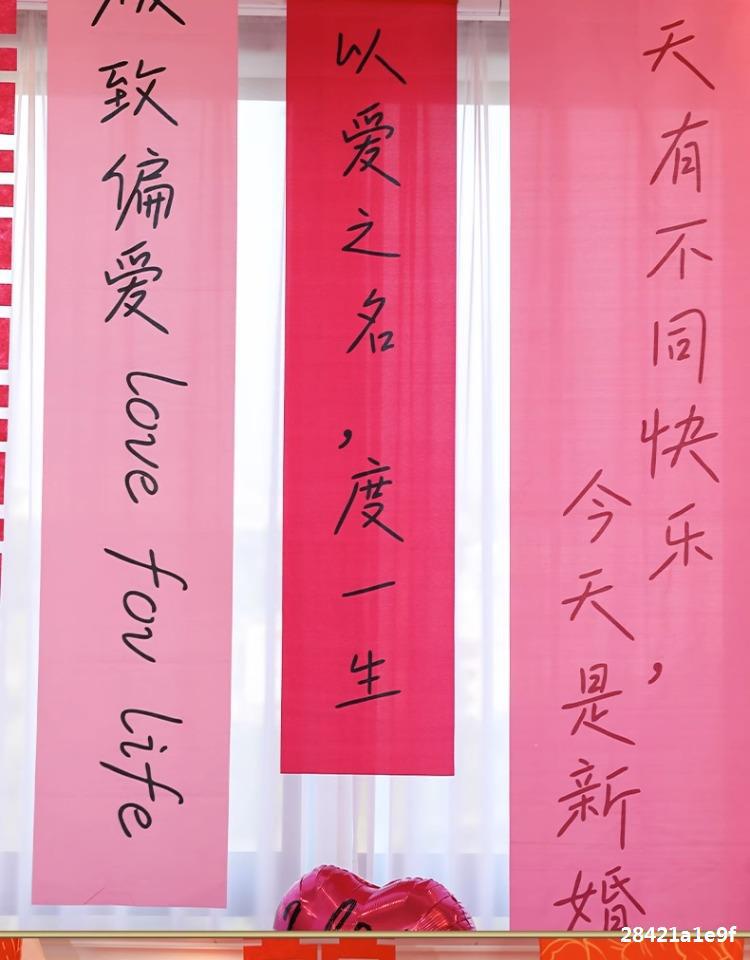 致偏爱 love for life
以爱之名，度一生
天有不同快乐，
今天是新婚
28421a1e9f